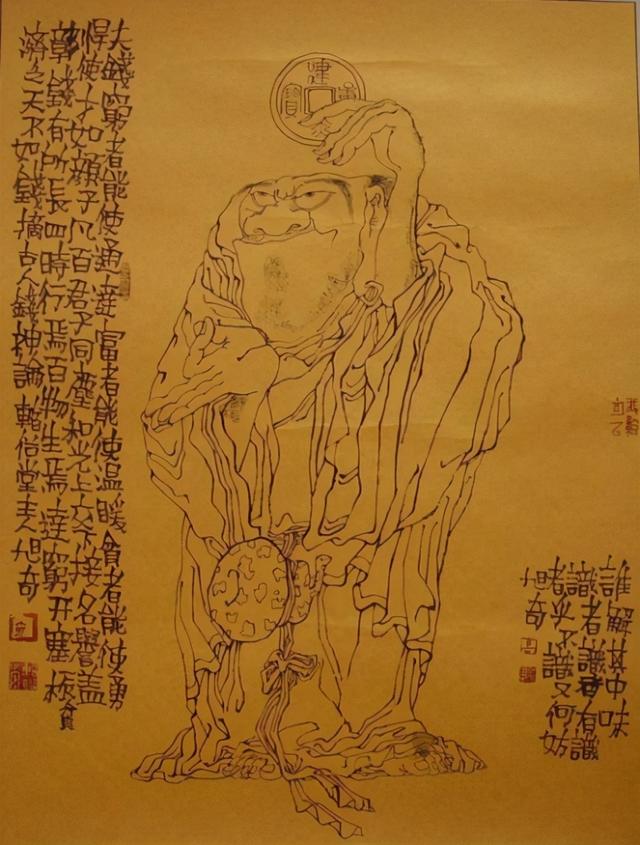 建炎重寶
夫錢窮者能使通達富者能使溫暖貧者能使勇
悍則使才如顏子凡百君子同塵和光上交下接名譽蓋
彰錢有所長四時行焉百物生焉達窮開塞振貧
濟乏天不如錢摘古人錢神論俗堂主人旭奇
誰解其中味
識者識者有識
者乎不識又何妨
旭奇